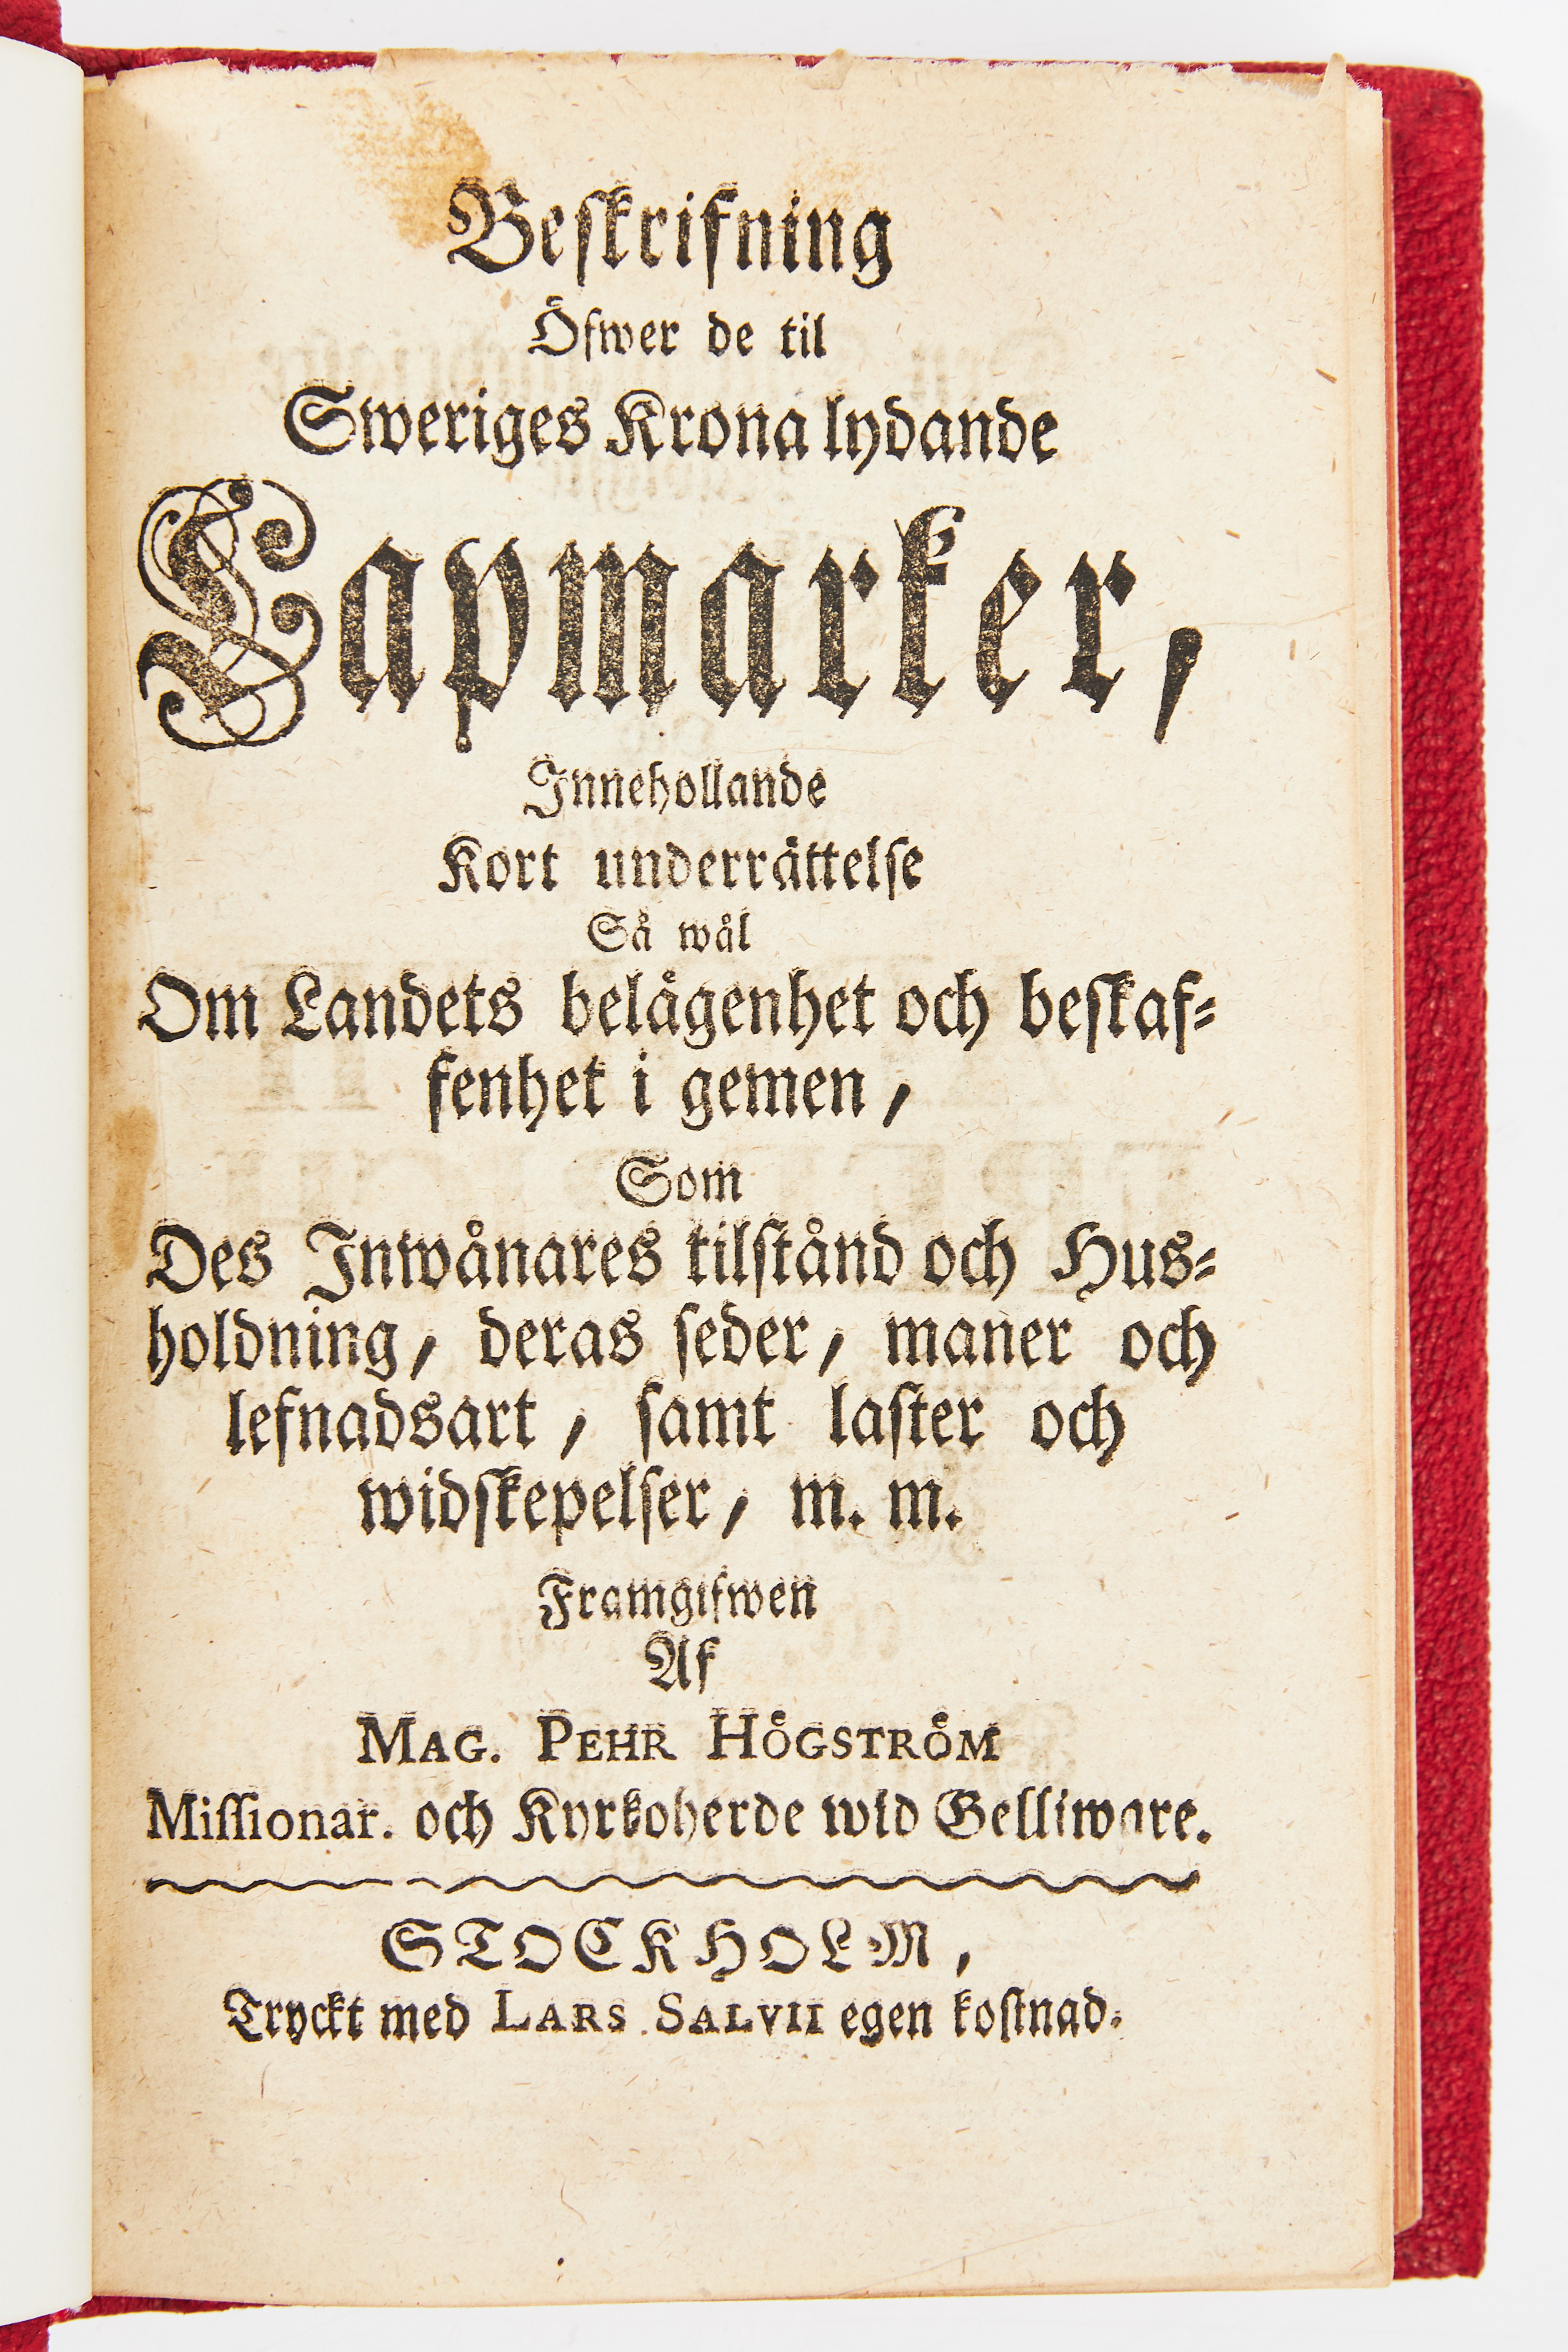 Beskrifning
Öfwer de til
Sweriges Krona lydande
Lapmarker,
Innehollande
Kort underrättelse
Så wäl
Om Landets belägenhet och beskaf-
fenhet i gemen,
Som
Des Inwånares tilstånd och Hus-
holdning, deras seder, maner och
lefnadsart, samt laster och
widskepelser, m. m.
Framgifwen
Af
MAG. PEHR HÖGSTRÖM
Missionar. och Kyrkoherde wid Gelliware.
STOCKHOLM,
Tryckt med LARS SALVII egen kostnad.